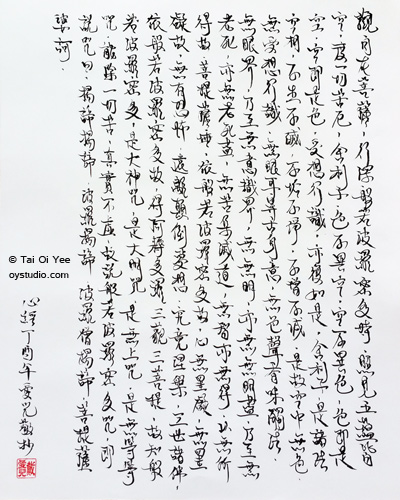 觀自在菩薩，行深般若波羅蜜多時，照見五蘊皆
空，度一切苦厄，舍利子，色不異空，空不異色，色即是
空，空即是色，受想行識，亦復如是，舍利子，是諸法
空相，不生不滅，不垢不淨，不增不減，是故空中無色，
無受想行識，無眼耳鼻舌身意，無色聲香味觸法，
無眼界，乃至無意識界，無無明，亦無無明盡，乃至無
老死，亦無老死盡，無苦集滅道，無智亦無得，以無所
得故，菩提薩埵，依般若波羅蜜多故，心無罣礙，無罣
礙故，無有恐怖，遠離顛倒夢想，究竟涅槃，三世諸佛，
依般若波羅蜜多故，得阿耨多羅三藐三菩提，故知般
若波羅蜜多，是大神咒，是大明咒，是無上咒，是無等等
咒，能除一切苦，真實不虛，故說般若波羅蜜多咒，即
說咒曰，揭諦揭諦，波羅揭諦，波羅僧揭諦，菩提薩
婆訶．
心經丁酉年愛兒敬抄
© Tai Oi Yee
oystudio.com